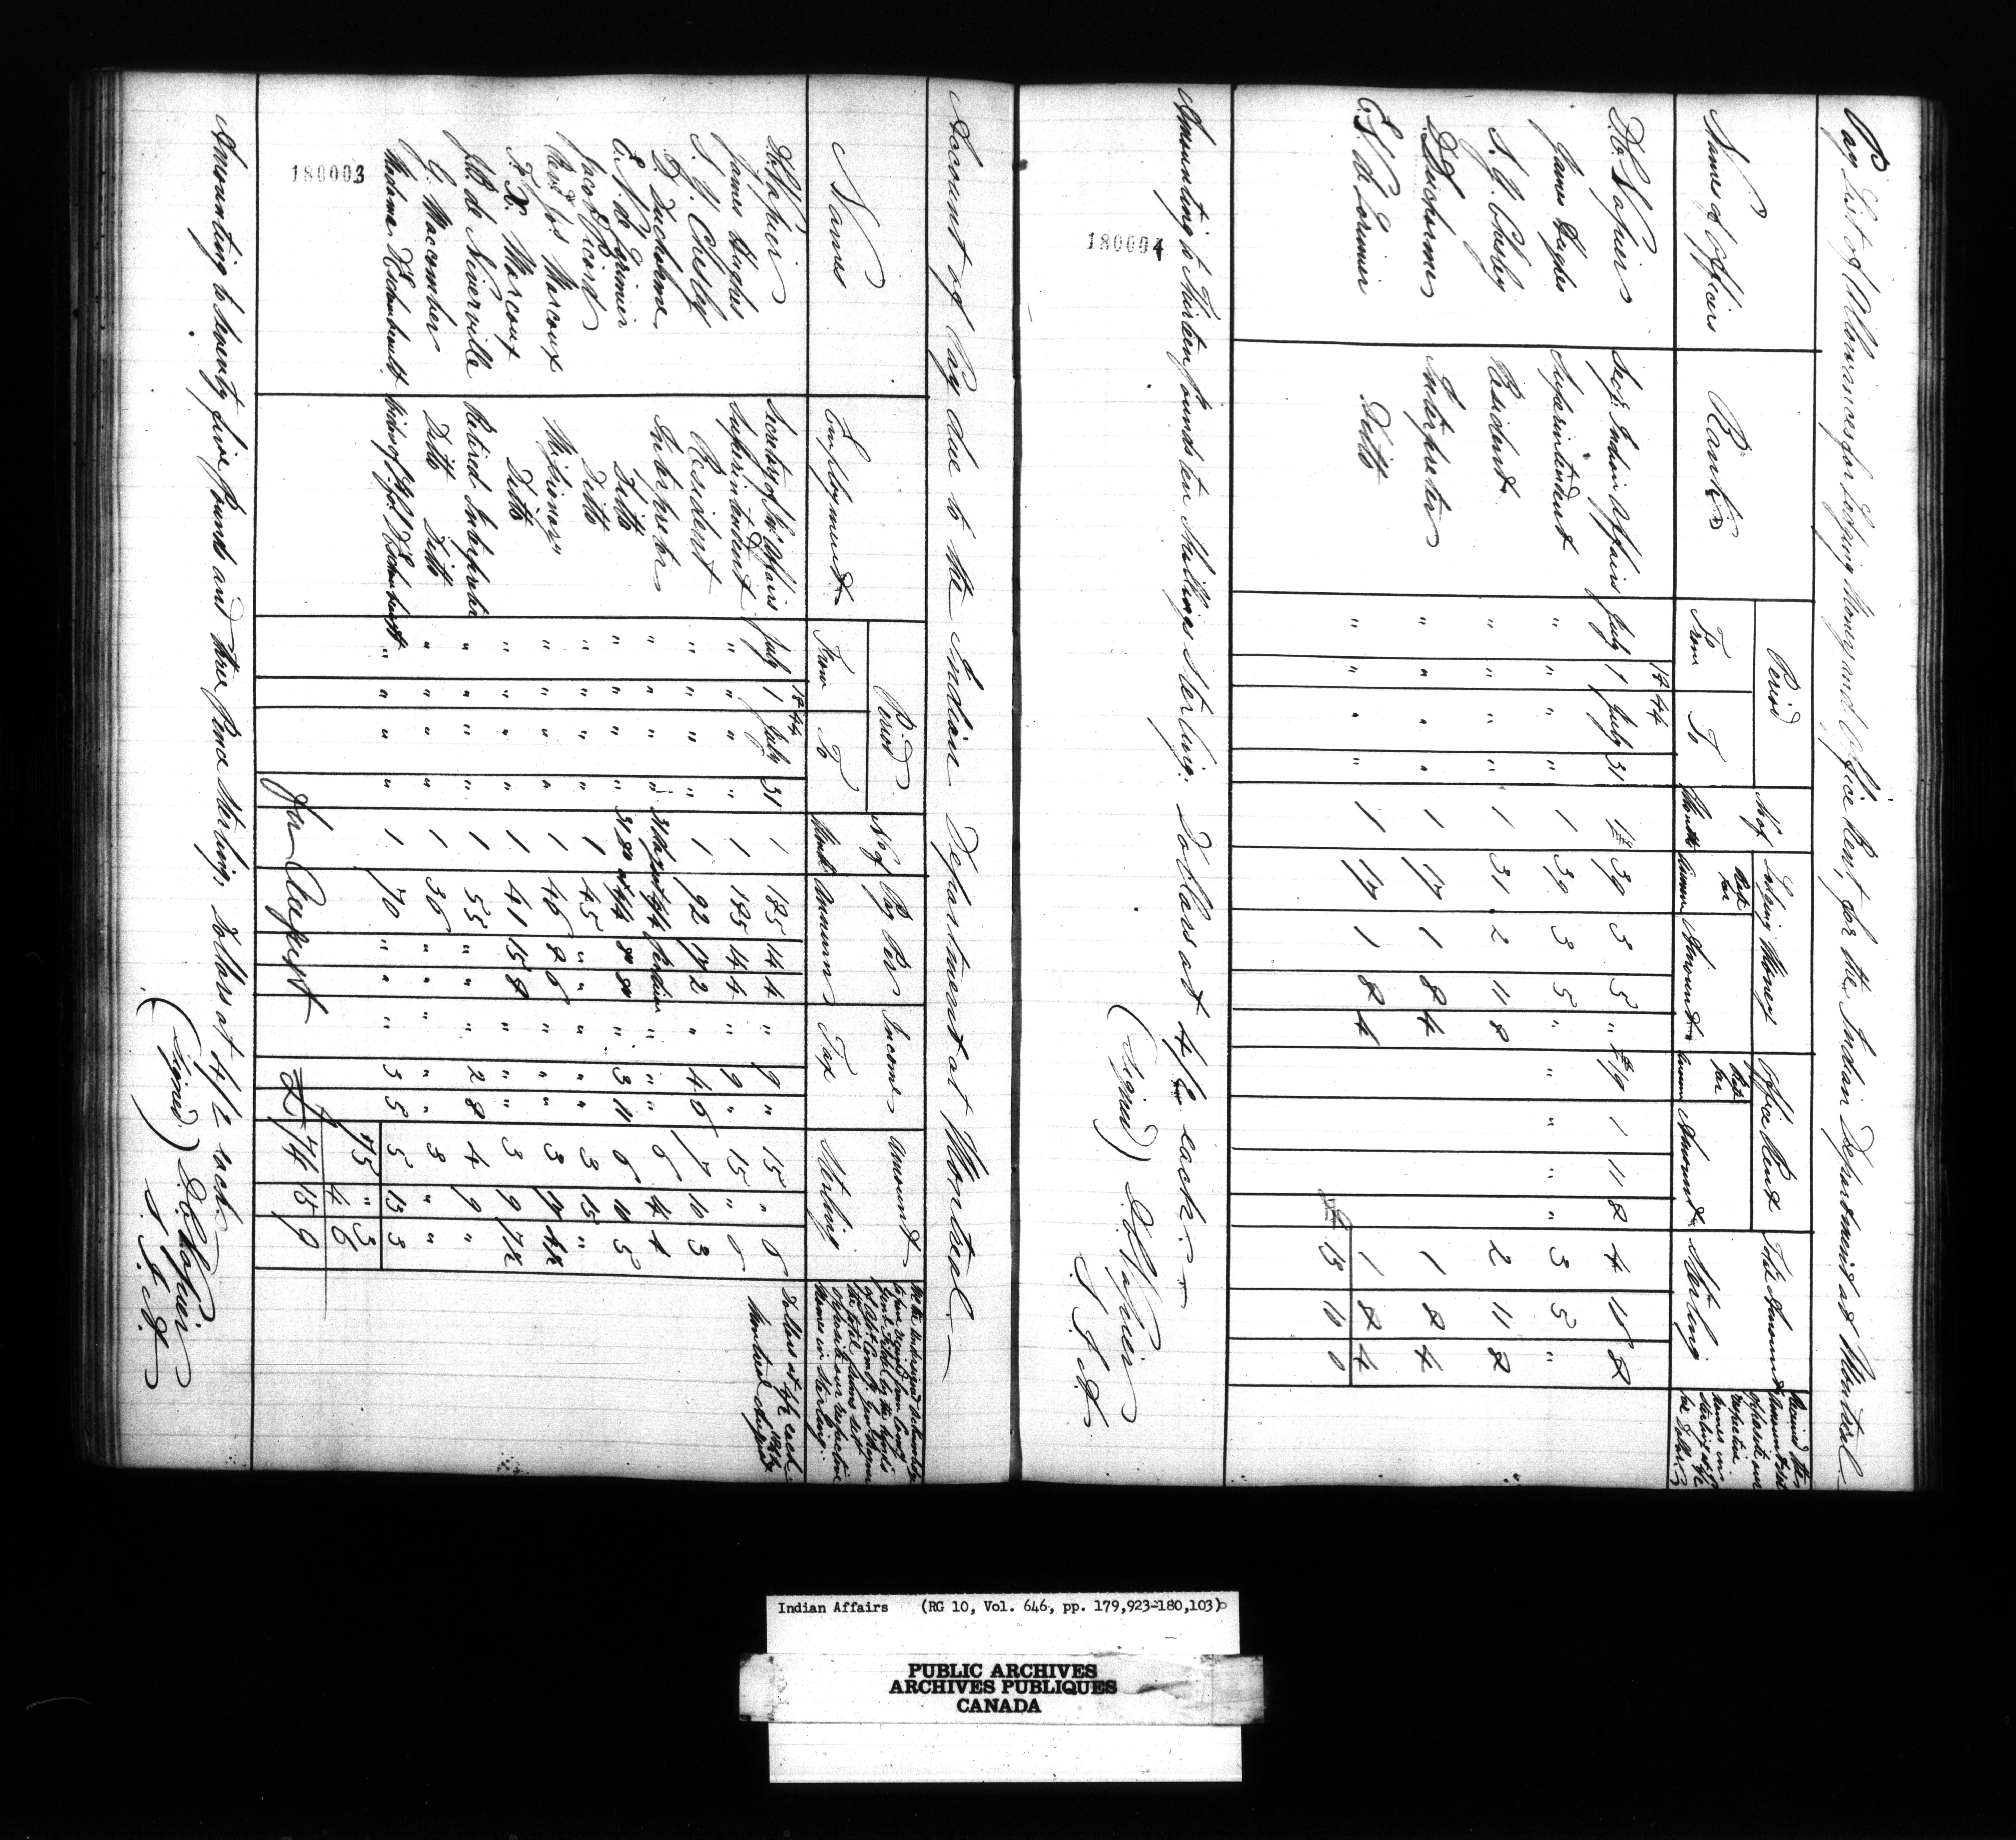 Account of Pay due to the Indian Department at Montreal
Names Employment Period From To No of Months Pay Per Annum Income Tax Amount Sterling
1844
D C Napier Secretary of In. Affairs July 1 July 31 1 185 14 4 " 9 " 15 " 6
James Hughes Superintendent " " " " 1 185 14 4 " 9 " 15 " 6
S. Y. Chesley Resident " " " " 1 92 17 2 " 4 6 7 10 3
D. Ducharme Interpreter " " " " 6 4 "
E. N. de Lorimier Ditto " " " " " 3 11 6 10 5
Jacob Picard Ditto " " " " 1 45 " " " " " 3 15 "
Revd Jos Marcoux Missionary " " " " 1 46 8 6 " " "
F. X. Marcoux Ditto " " " " 1 41 15 8 " " " 3 9 7½
J B de Niverville Retired Interpreter " " " " 1 55 " " " 2 8 4 9 "
G. Macomber Ditto Ditto " " " " 1 36 " " " " " 3 " "
Madame " " " " 1 70 " " " 3 5 5 13 3
75 " 3
4 6
74 15 9
Dollars at 4/2 each
Montreal August
for August
180003
Amounting to Seventy five Pounds and three Pence Sterling, Dollars at 4/2 each
(Signed) D C Napier
S. I. A.
Pay List of Allowances for Lodging Money and Office Rent, for the Indian Department at Montreal
Names of Officers Rank Period From To No of Months Lodging Money Rate per Annum Amount Office Rent Rate per Annum Amount Total Amount Sterling
1844
D C Napier Secy. Indian Affairs July 1 July 31 1 39 3 5 " 19 1 11 8 4 16 8
James Hughes Superintendent " " " " 1 39 3 5 " " " " " 3 5 "
S. Y. Chesley Resident " " " " 1 31 2 11 8 2 11 8
D Ducharme Interpreter " " " " 1 17 1 8 4 1 8 4
E. N. de Lorimier Ditto " " " " 1 17 1 8 4 1 8 4
13 10 0
180004
Amounting to Thirteen Pounds ten Shillings Sterling. Dollars at 4/2 each
(Signed) D C Napier
S. I. A.
Indian Affairs (RG 10, Vol. 646, pp. 179,923-180,103)
PUBLIC ARCHIVES
ARCHIVES PUBLIQUES
CANADA